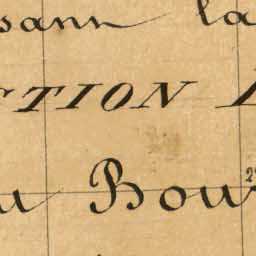 sann la
CTION
u Bou